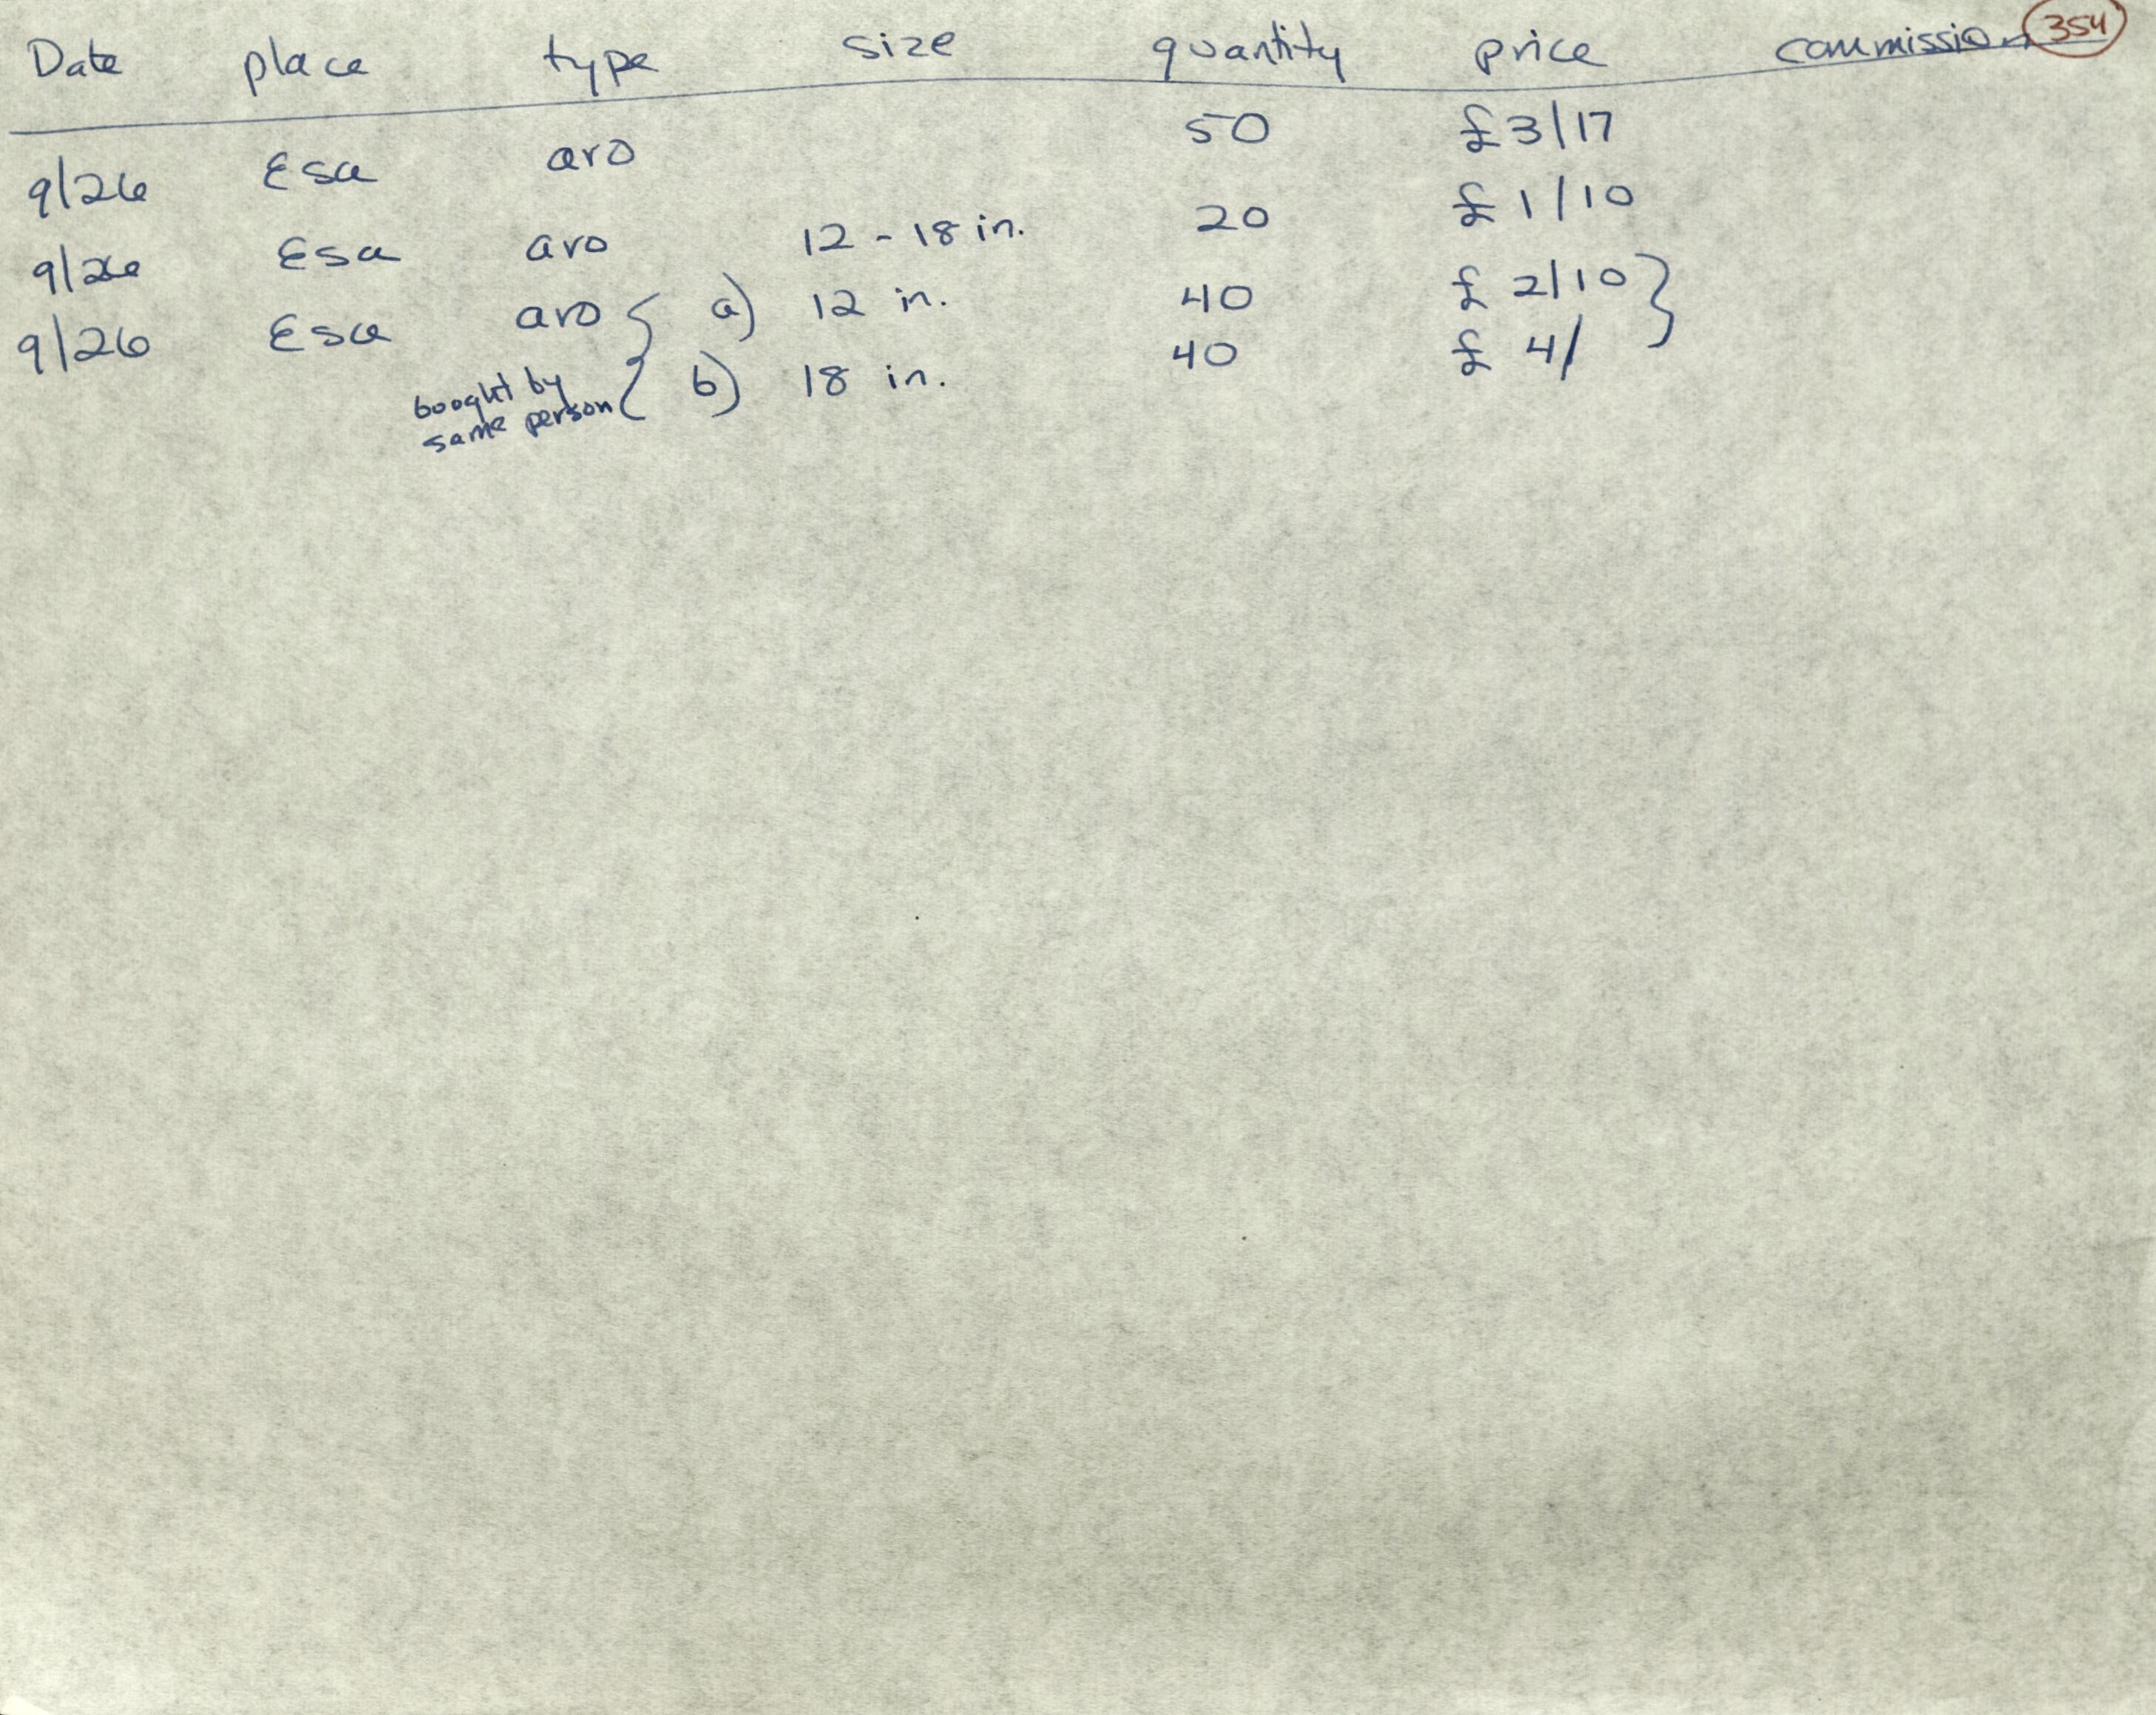 354
Date place type size quantity price commission
9/26 Esa aro 50 £3/17
9/26 Esa aro 12 - 18 in. 20 £1/10
9/26 Esa aro { a) 12 in. 40 £ 2/10 }
bought by same person { b) 18 in. 40 £ 4/